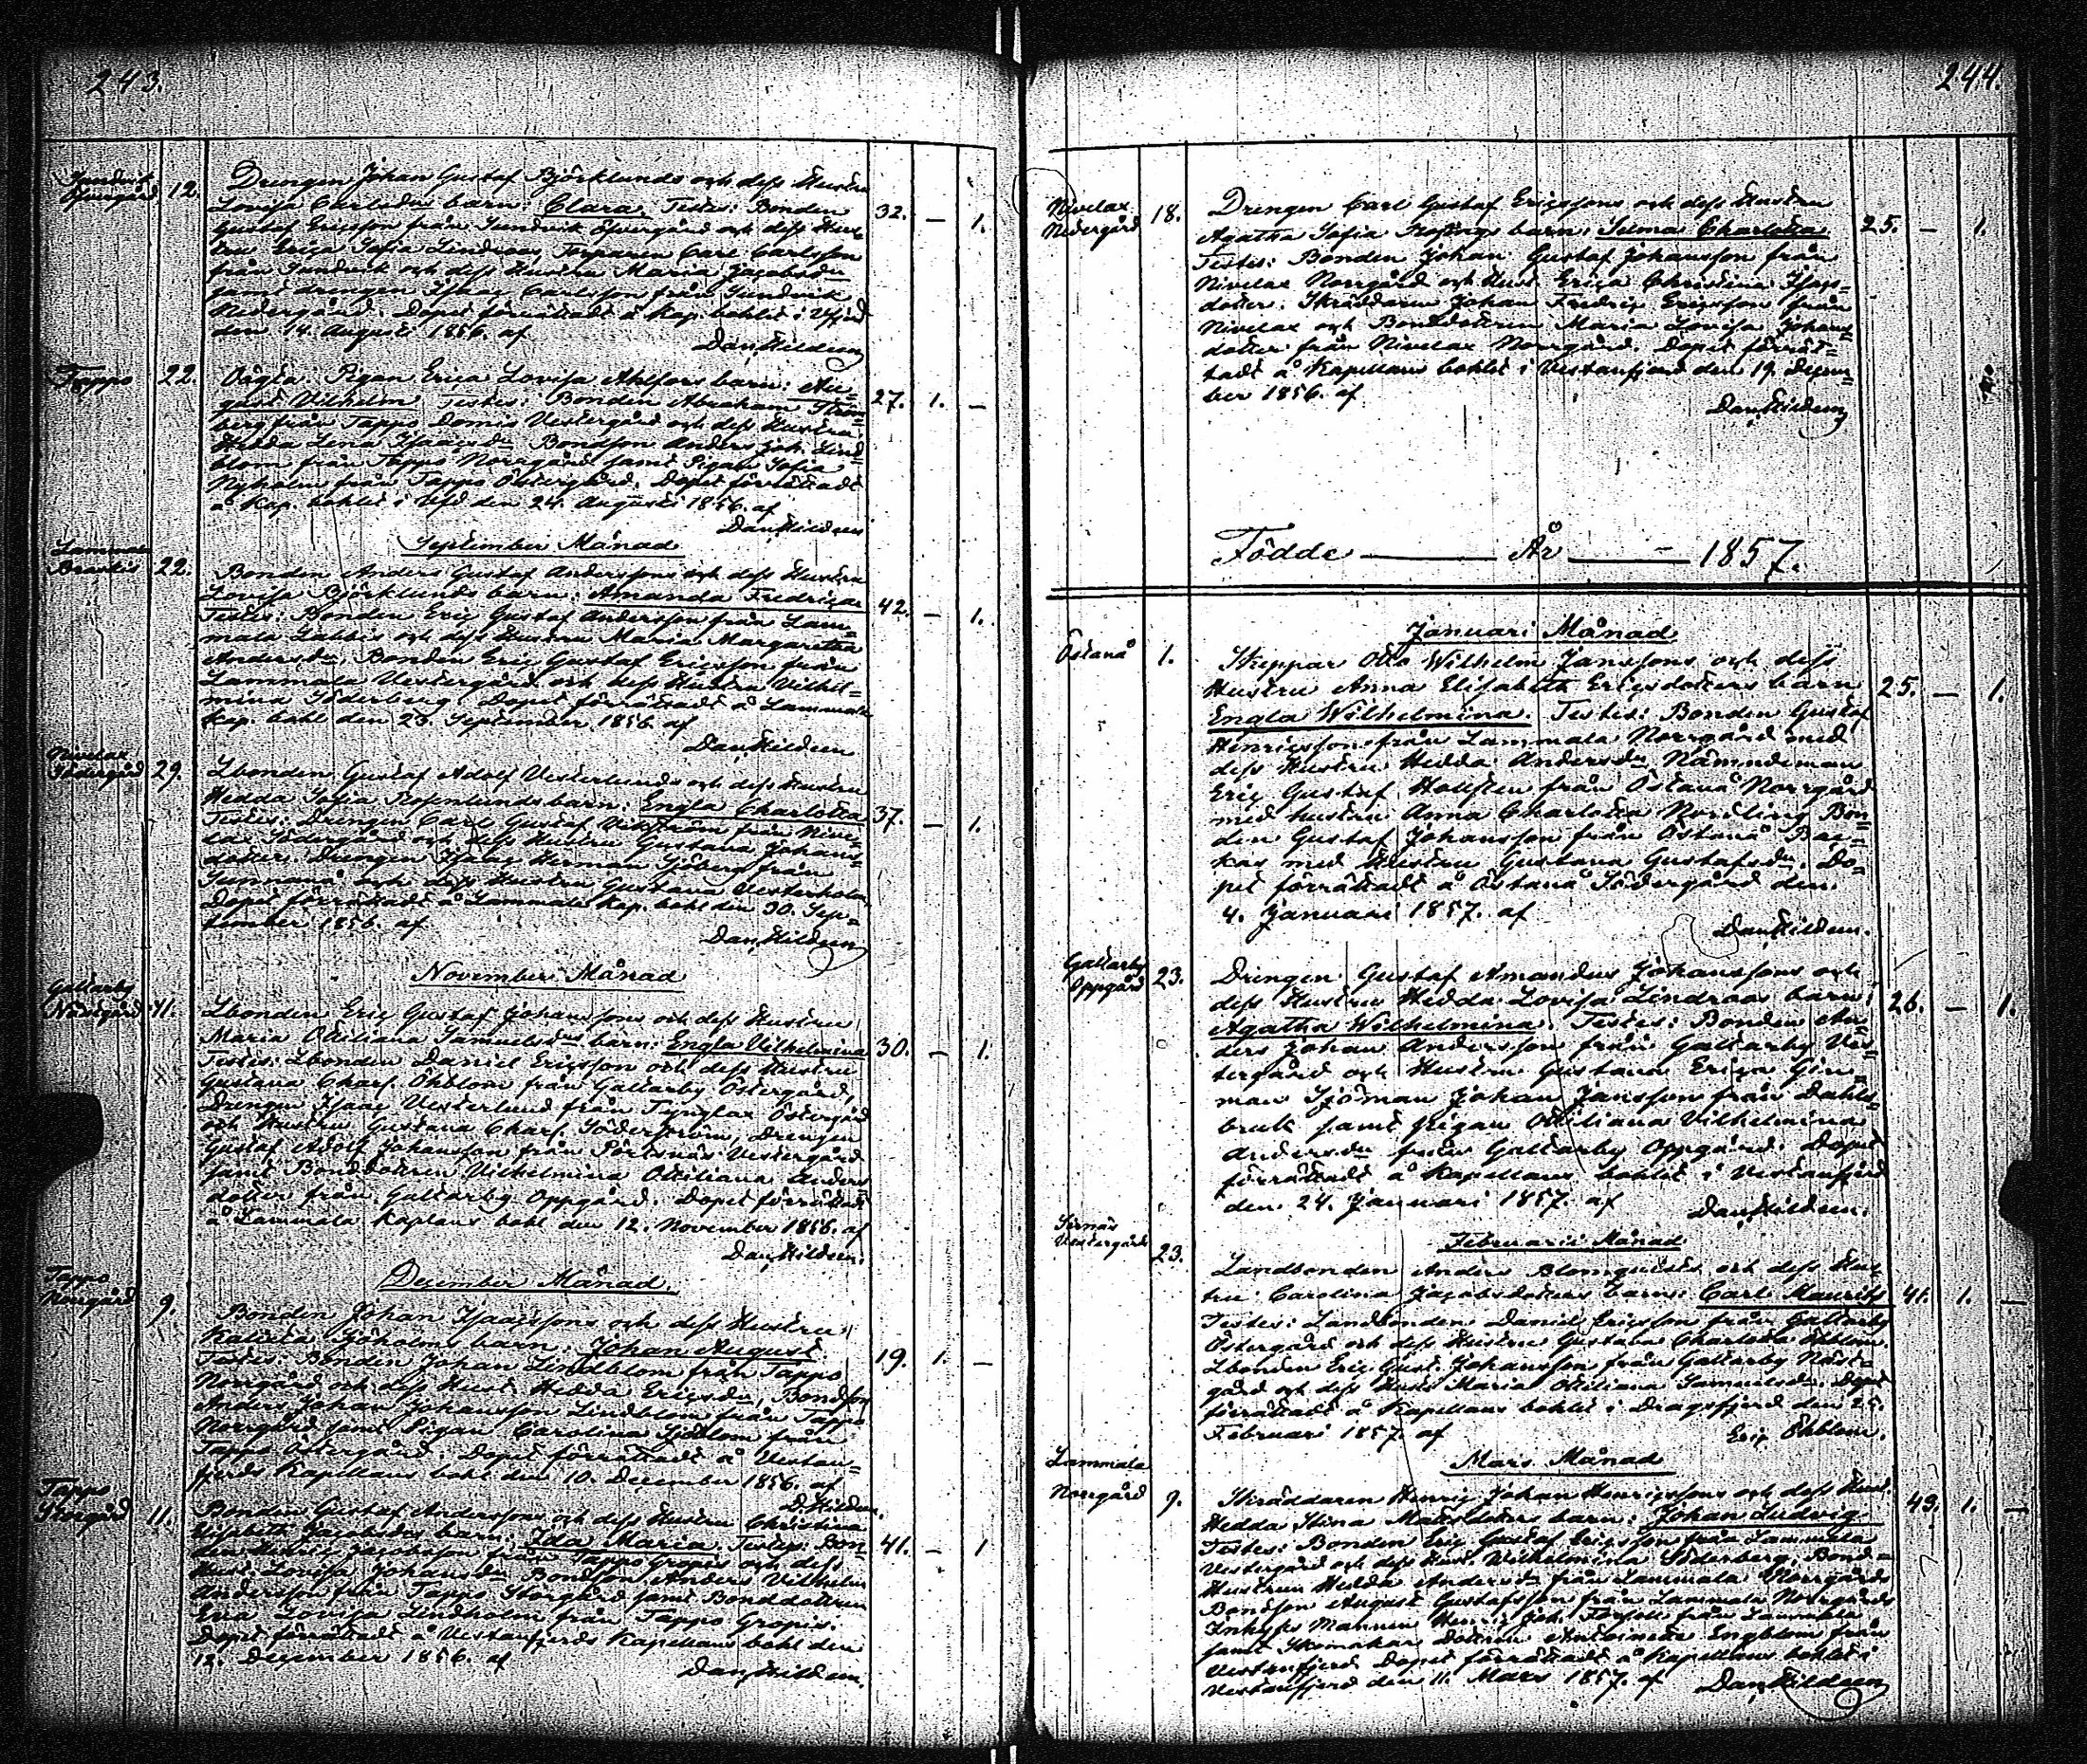 243.
Sundvik
Öfvergård 12. Drengen Johan Gustaf Björklunds och dess Hustru
Lovisa Carlsdrs barn: Clara. Testes: Bonden 32. — 1.
Gustaf Ericsson från Sundvik Öfvergård och dess Hus-
tru Erica Sofia Lindroos, Torparen Carl Carlsson
från Sundvik och dess Hustru Maria Jacobsdr
samt drengen Isaac Carlsson från Sundvik
Nedergård. Dopet förrättadt å Kap. bohlet i Vfjrd
den 14. Augusti 1856. af
Dan. Hildeen
Tappo 22. Oägta: Pigan Erica Lovisa Ahlfors barn: Au-
gust Vilhelm Testes: Bonden Abraham Ström- 27. 1. —
berg från Tappo Domis Vestergård och dess Hustru
Hedda Lena Isaacsdr Bondson Anders Joh. Lind-
blom från Tappo Norrgård samt Pigan Sofia
Nyholm från Tappo Östergård. Dopet förrättadt
å Kap. bohlet i Vfjd den 24. Augusti 1856. af
Dan. Hildeen
September Månad
Lammala
Brastis 22. Bonden Anders Gustaf Anderssons och dess Hustru
Lovisa Björklunds barn: Amanda Fredrica 42. — 1.
Testes: Bonden Eric Gustaf Andersson från Lam-
mala och dess Hustru Maria Margaretha
Andersdr, Bonden Eric Gustaf Ericsson från
Lammala Vestergård och dess Hustru Vilhel-
mina Söderberg. Dopet förrättadt å Lammala
Kap. bohl den 23. September 1856. af
Dan. Hildeen
Nivelax
Södergård 29. Lbonden Gustaf Adolf Vesterlunds och dess Hustru
Hedda Sofia Rosenlunds barn: Engla Charlotta 37. — 1.
Testes: Drengen Carl Gustaf Vikström från Nive-
lax Södergård och dess Hustru Gustava Johans-
dotter. Drengen Isaac Herman Sjöberg från
Sunnanå och dess Hustru Gustava Vesterholm.
Dopet förrättadt å Lammala Kap. bohl den 30. Sep-
tember 1856. af
Dan. Hildeen
November Månad
Galtarby
Nästgård 11. Lbonden Eric Gustaf Johanssons och dess Hustru
Maria Ottiliana Samuelsdrs barn: Engla Vilhelmina 30. — 1.
Testes: Lbonden Daniel Ericsson och dess Hustru
Gustava Charl. Ekblom från Galtarby Östergård,
Drengen Isaac Vesterlund från Tynglax Östergård
och Hustru Gustava Charl. Söderström, Drengen
Gustaf Adolf Johansson från Pörtsnäs Vestergård
samt Bonddottren Vilhelmina Ottiliana Anders
dotter från Galtarby Oppgård. Dopet förrättadt
å Lammala Kaplans bohl den 12. November 1856. af
Dan. Hildeen.
December Månad.
Tappo
Norrgård 9. Bonden Johan Isaacssons och dess Hustru
Sjöholms barn: Johan August. 19. 1. —
Testes: Bonden Johan Lindblom från Tappo
Norrgård och dess Hust. Hedda Ericsdr, Bondson
Anders Johan Johansson Lindblom från Tappo
Norrgård samt Pigan Carolina Sjöblom från
Tappo Östergård. Dopet förrättadt å Vestan-
fjerds Kapellans bohl den 10. December 1856. af
D. Hildeen.
Tappo
Storgård 11. Bonden Gustaf Anderssons och dess Hustru Christina
Elisabeth Jacobsdrs barn: Ida Maria. Testes: Bon- 41. — 1
den Jacobsson från Tappo Gropis och dess
Hust. Lovisa Johansdr Bondson Anders Vilhelm
Andersson från Tappo Storgård samt Bonddottren
Eva Lovisa Lindholm från Tappo Gropis.
Dopet förrättadt å Vestanfjerds Kapellans bohl den
13. December 1856. af
Dan. Hildeen.
244.
Nivelax
Nedergård 18. Drengen Carl Gustaf Ericssons och dess Hustru
Agatha Sofia barn: Selma Charlotta 25. — 1.
Testes: Bonden Johan Gustaf Johansson från
Nivelax Norrgård och Hust. Erica Christina Isags-
dotter. Skräddaren Johan Fredric Ericsson från
Nivelax och Bonddottren Maria Lovisa Johans-
dotter från Nivelax Norrgård. Dopet förrät-
tadt å Kapellans bohlet i Vestanfjerd den 19. Decem-
ber 1856. af
Dan. Hildeen
Födde — År — 1857.
Januari Månad
Östanå 1. Skeppar Otto Wilhelm Janssons och dess
Hustru Anna Elisabeth Ericsdotters barn 25. — 1.
Engla Wilhelmina. Testes: Bonden Gustaf
Henricsson från Lammala Norrgård med
dess Hustru Hedda Andersdr Nämndeman
Eric Gustaf Hollsten från Östanå Norrgård
med hustru Anna Charlotta Nordling Bon-
den Gustaf Johansson från Östanå Bac-
kas med Hustru Gustava Gustafsdr. Do-
pet förrättadt å Östanå Södergård den
4. Januari 1857. af
Dan. Hildeen.
Galtarby
Oppgård 23. Drengen Gustaf Amandus Johanssons och
dess Hustru Hedda Lovisa Lindroos barn: 26. — 1.
Agatha Wilhelmina. Testes: Bonden An-
ders Johan Andersson från Galtarby Ves-
tergård och Hustru Gustava Erica
Sjöman Johan Jansson från Dahls-
bruk samt pigan Ottiliana Vilhelmina
Andersdr från Galtarby Oppgård. Dopet
förrättadt å Kapellans bohlet i Vestanfjerd
den 24. Januari 1857. af
Dan. Hildeen.
Februarii Månad
Vestergård 23. Landbonden Anders Blomqvists och dess Hus-
tru Carolina Jacobsdotters barn: Carl Maurits 41. 1. —
Testes: Landbonden Daniel Ericsson från Galtarby
Östergård och dess Hustru Gustava Charlotta Ekblom.
Lbonden Eric Gust. Johansson från Galtarby Näst-
gård och dess Hust. Maria Ottiliana Samuelsdr. Dopet
förrättadt å Kapellans bohlet i Dragsfjerd den 25.
Februari 1857. af
Eric Ekblom.
Mars Månad
Lammala
Norrgård 9. Skräddaren Henric Johan Henricssons och dess Hust.
Hedda Stina Matsdotters barn: Johan Ludvig 43. 1. —
Testes: Bonden Eric Gustaf Ericsson från Lammala
Vestergård och dess Hust. Wilhelmina Söderberg. Bond-
Hustrun Hedda Andersdr från Lammala Norrgårds
Bondson August Gustafsson från Lammala Norrgårds
Inhyses Mannen Henric Joh. från Lammala
samt Skomakare dottren Antoinette Engblom från
Vestanfjerd Dopet förrättadt å Kapellans bohlet i
Vestanfjerd den 11. Mars 1857. af Dan. Hildeen